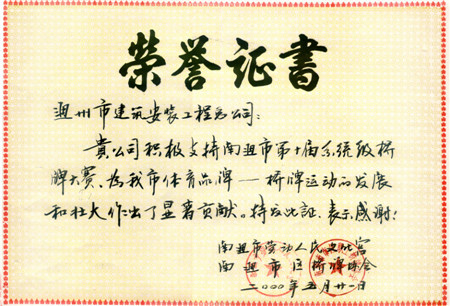 荣誉证书
通州市建筑安装工程总公司:
贵公司积极支持南通市第十届系统级桥
牌大赛、为我市体育品牌——桥牌运动的发展
和壮大作出了显著贡献。特发此证、表示感谢!
南通市劳动人民文化宫
南通市区桥牌协会
二000年五月廿一日